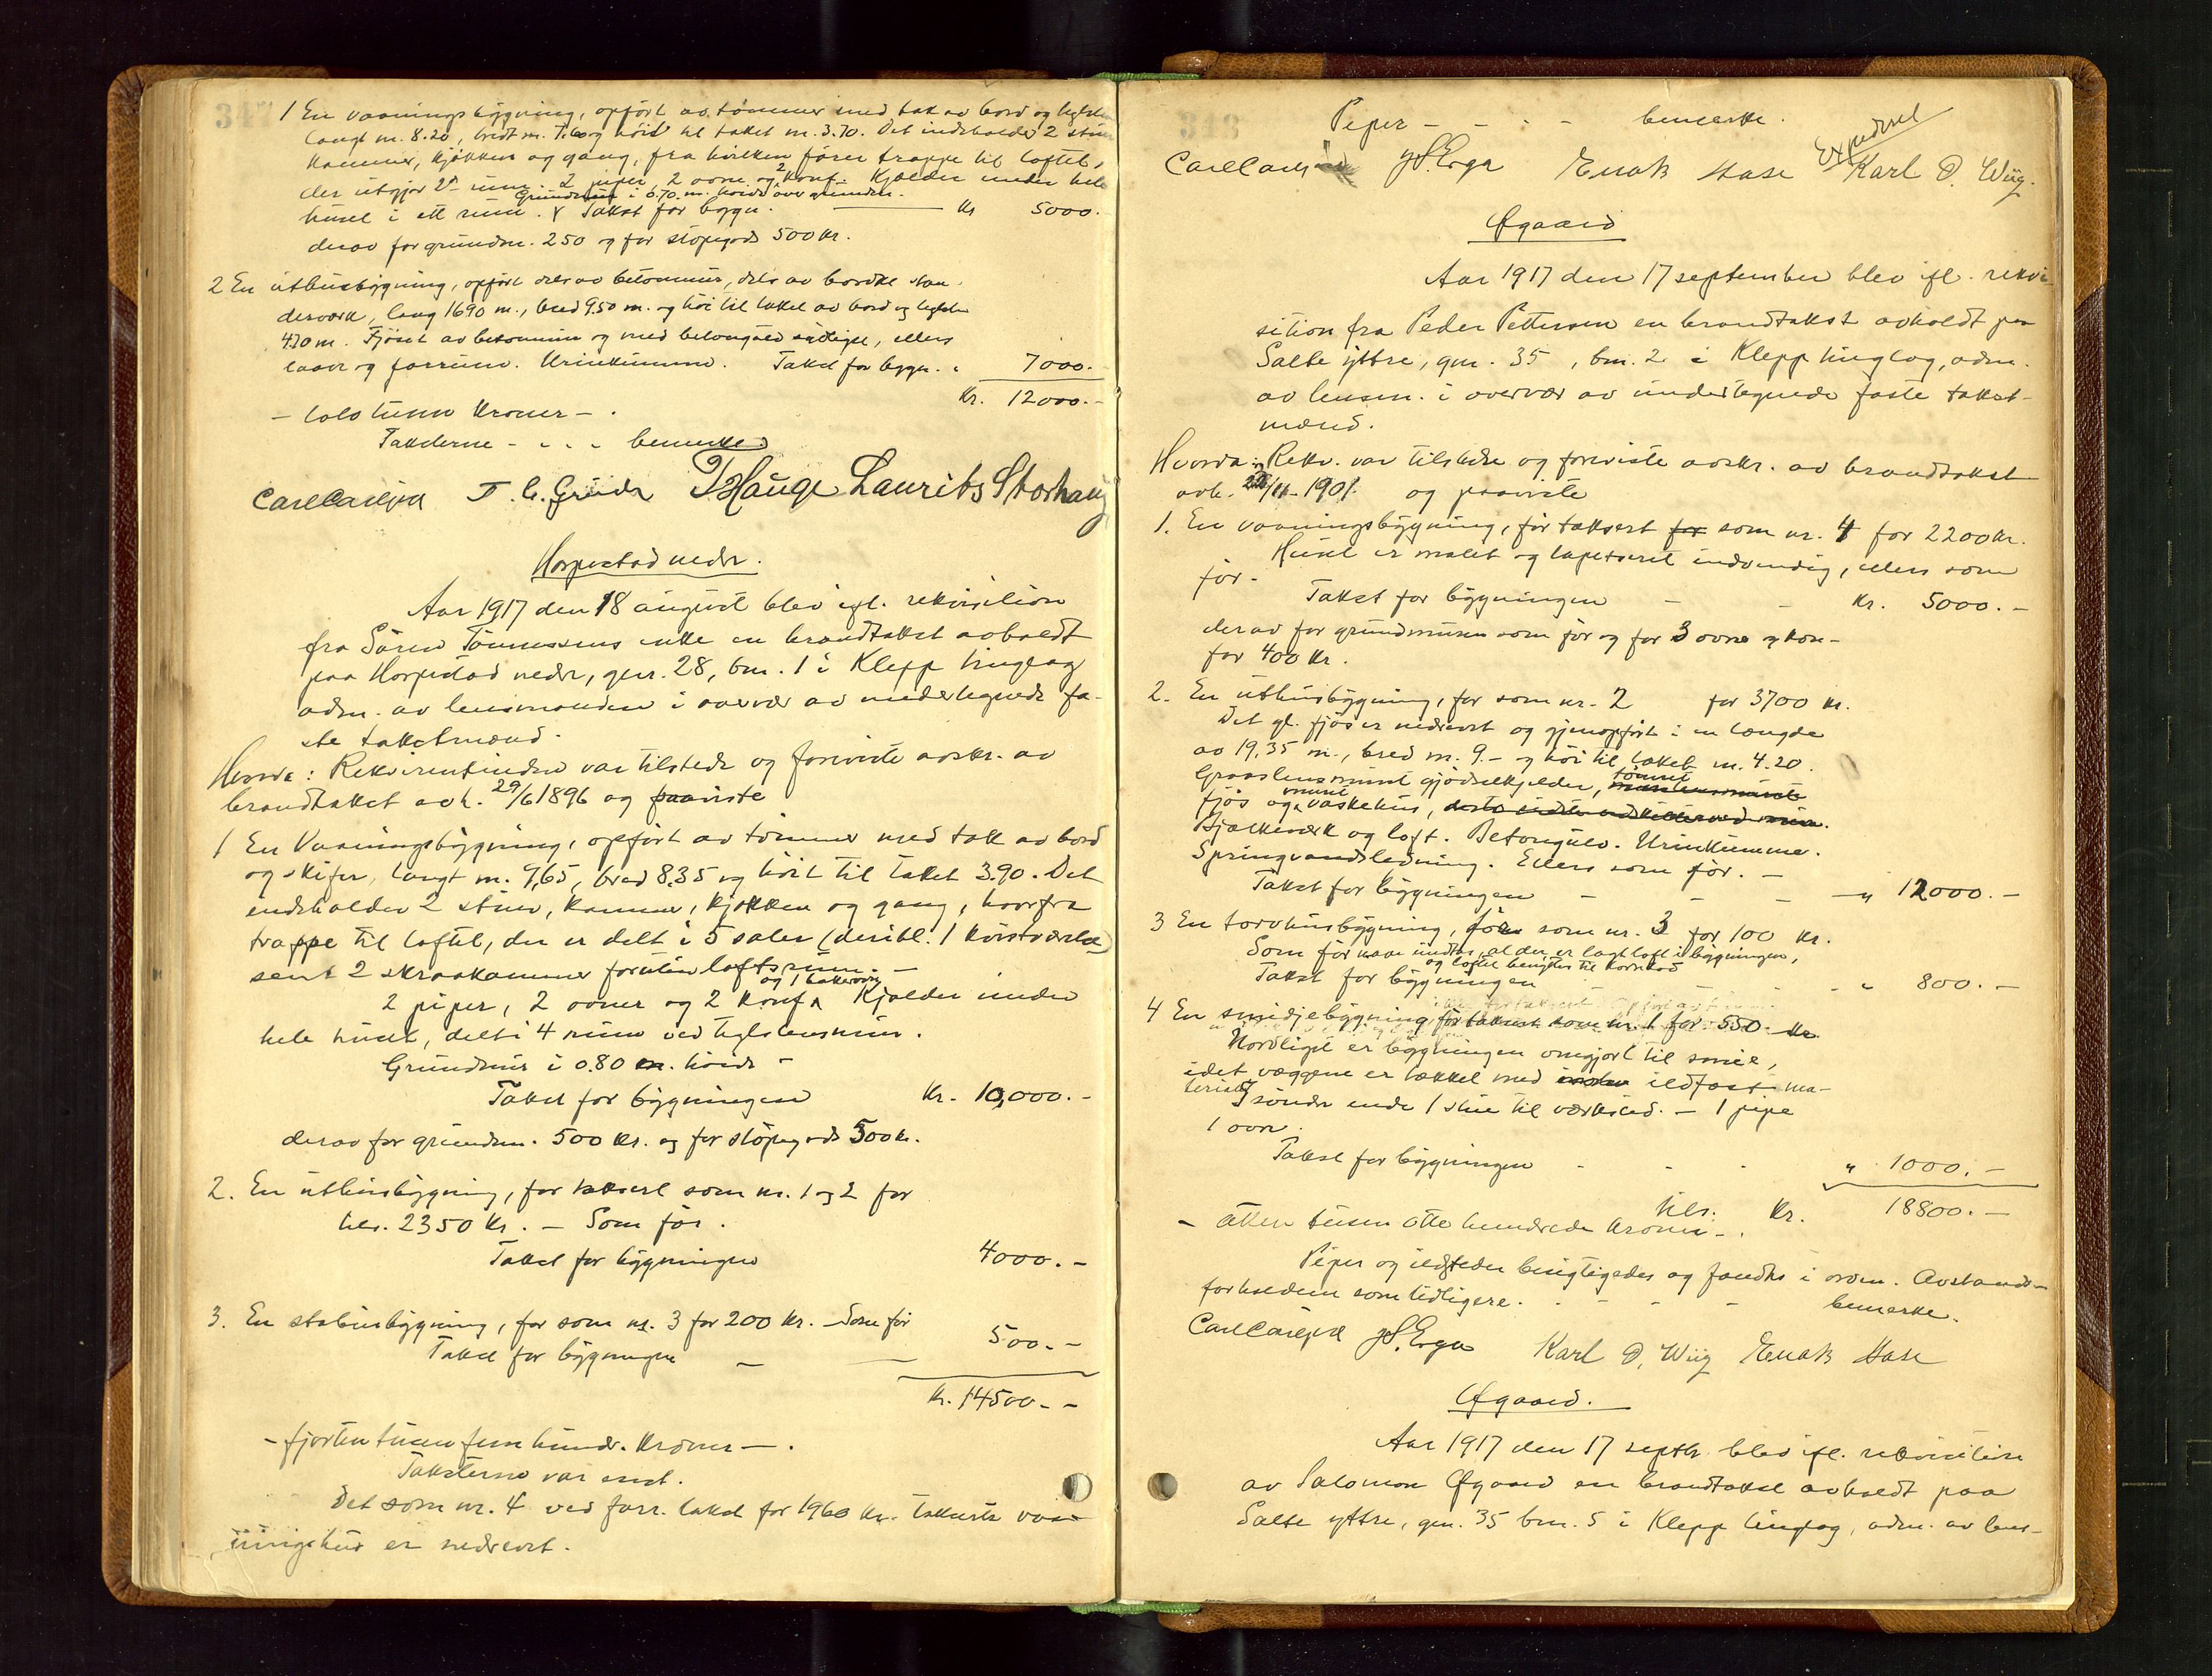 347
1 En vaaningsbygning, opført av tømmer med tak av bord og teglsten
langt m. 8.20, bredt m. 7.60 og høit til taket m. 3.70. Det indeholder 2 stuer
kammer, kjøkken og gang, fra hvilken fører trappe til loftet,
der utgjør 2 rum. 2 piper, 2 ovne og 2 komf. Kjælder under hele
Grundmur i 0.70 m. høide over grunden.
huset i ett rum. Takst for bygn. Kr 5000.-
derav for grundm. 250 og for støpegods 500 kr.
2 En uthusbygning, opført dels av betonmur, dels av bordkl. stan
derværk, lang 1690 m., bred 9.50 m. og høi til taket av bord og teglsten
4.70 m. Fjøset av betonmur og med betongulv, ellers
laave og forrum. Urinkumme. Takst for bygn. " 7000.-
Kr. 12000.-
- tolv tusen kroner - .
Taksterne - - - bemerke
Carl Carlsen T. C. Grude T Hauge Laurits Storhaug
Horpestad nedr.
Aar 1917 den 18 august blev ifl. rekvisition
fra Sören Tönnessens enke en brandtakst avholdt
paa Horpestad nedre, gnr. 28, bnr. 1 i Klepp tinglag
adm. av lensmanden i overvær av undertegnede fa-
ste takstmænd.
Hvorda: Rekvirentinden var tilstede og foreviste avskr. av
brandtakst avh. 29/6 1896 og paaviste
1 En Vaaningsbygning, opført av tømmer med tak av bord
og skifer, langt m. 9,65, bred 8.35 og høit til taket 3.90. Det
indeholder 2 stuer, kammer, kjøkken og gang, hvorfra
trappe til loftet, der er delt i 5 saler (deribl. 1 kvistværelse)
samt 2 skraakammer foruten loftsrum. -
og 1 bakerovn
2 piper, 2 ovner og 2 komf. Kjælder under
hele huset, delt i 4 rum ved teglstensmur.
Grundmur i 0.80 m. høide -
Takst for bygningen Kr. 10,000.-
derav for grundm. 500 kr. og for støpegods 500 kr.
2. En uthusbygning, før taksert som nr. 1 og 2 for
tils. 2350 kr. - Som før.
Takst for bygningen 4000.-
3. En stabursbygning, før som nr. 3 for 200 kr. - Som før
Takst for bygningen - 500.-
Kr. 14500.-
- fjorten tusen fem hundr. kroner - .
Taksterne var enst.
Det som nr. 4 ved forr. takst for 1960 kr. takserte vaa-
ningshus er nedrevet.
348
Piper - - - - bemerke.
Carl Carlsen Enok Hase Karl O. Wiig.
Expedert
Øgaard
Aar 1917 den 17 september blev ifl. rekvi-
sition fra Peder Pettersen en brandtakst avholdt paa
Salte yttre, gnr. 35, bnr. 2 i Klepp tinglag, adm.
av lensm. i overvær av undertegnede faste takst-
mænd.
Hvorda: Rekv. var tilstede og foreviste avskr. av brandtakst
avh. /11-1901. og paaviste
1. En vaaningsbygning, før taksert for som nr. 4 for 2200 kr.
Huset er malet og tapetseret indvendig, ellers som
før.
Takst for bygningen - - Kr. 5000.-
derav for grundmuren som før og for 3 ovne og kom-
for 400 kr.
2. En uthusbygning, før som nr. 2 for 3700 kr.
Det gl. fjøs er nedrevet og gjenopført i en længde
av 19,35 m., bred m. 9.- og høi til taket m. 4.20.
Graastensmuret gjødselkjelder, tømret
fjøs og muret vaskehus,
Bjælkeværk og loft. Betongulv. Urinkumme.
Springvandsledning. Ellers som før. -
Takst for bygningen - - - " 12000.-
3 En torvhusbygning, før som nr. 3 for 100 kr.
Som før naar undtas, at der er lagt loft i bygningen,
og loftet benyttes til
Takst for bygningen - - " 800.-
4 En smidjebygning før taksert som nr. 1 for 550.- kr.
Nordligst er bygningen omgjort til smie,
idet væggene er dækket med ildfast ma-
teriale
I søndre ende 1 stue til værksted. - 1 pipe
1 ovn.
Takst for bygningen - - - " 1000.-
tils. Kr. 18800.-
- atten tusen otte hundrede kroner - .
Piper og ildsteder besigtigedes og fandtes i orden. Avstands-
forholdene som tidligere. - - - bemerke.
Carl Carlsen Karl O. Wiig Enok Hase
Øgaard.
Aar 1917 den 17 septbr. blev ifl. rekvisition
av Salomon Øgaard en brandtakst avholdt paa
Salte yttre, gnr. 35 bnr. 5 i Klepp tinglag, adm. av lens-